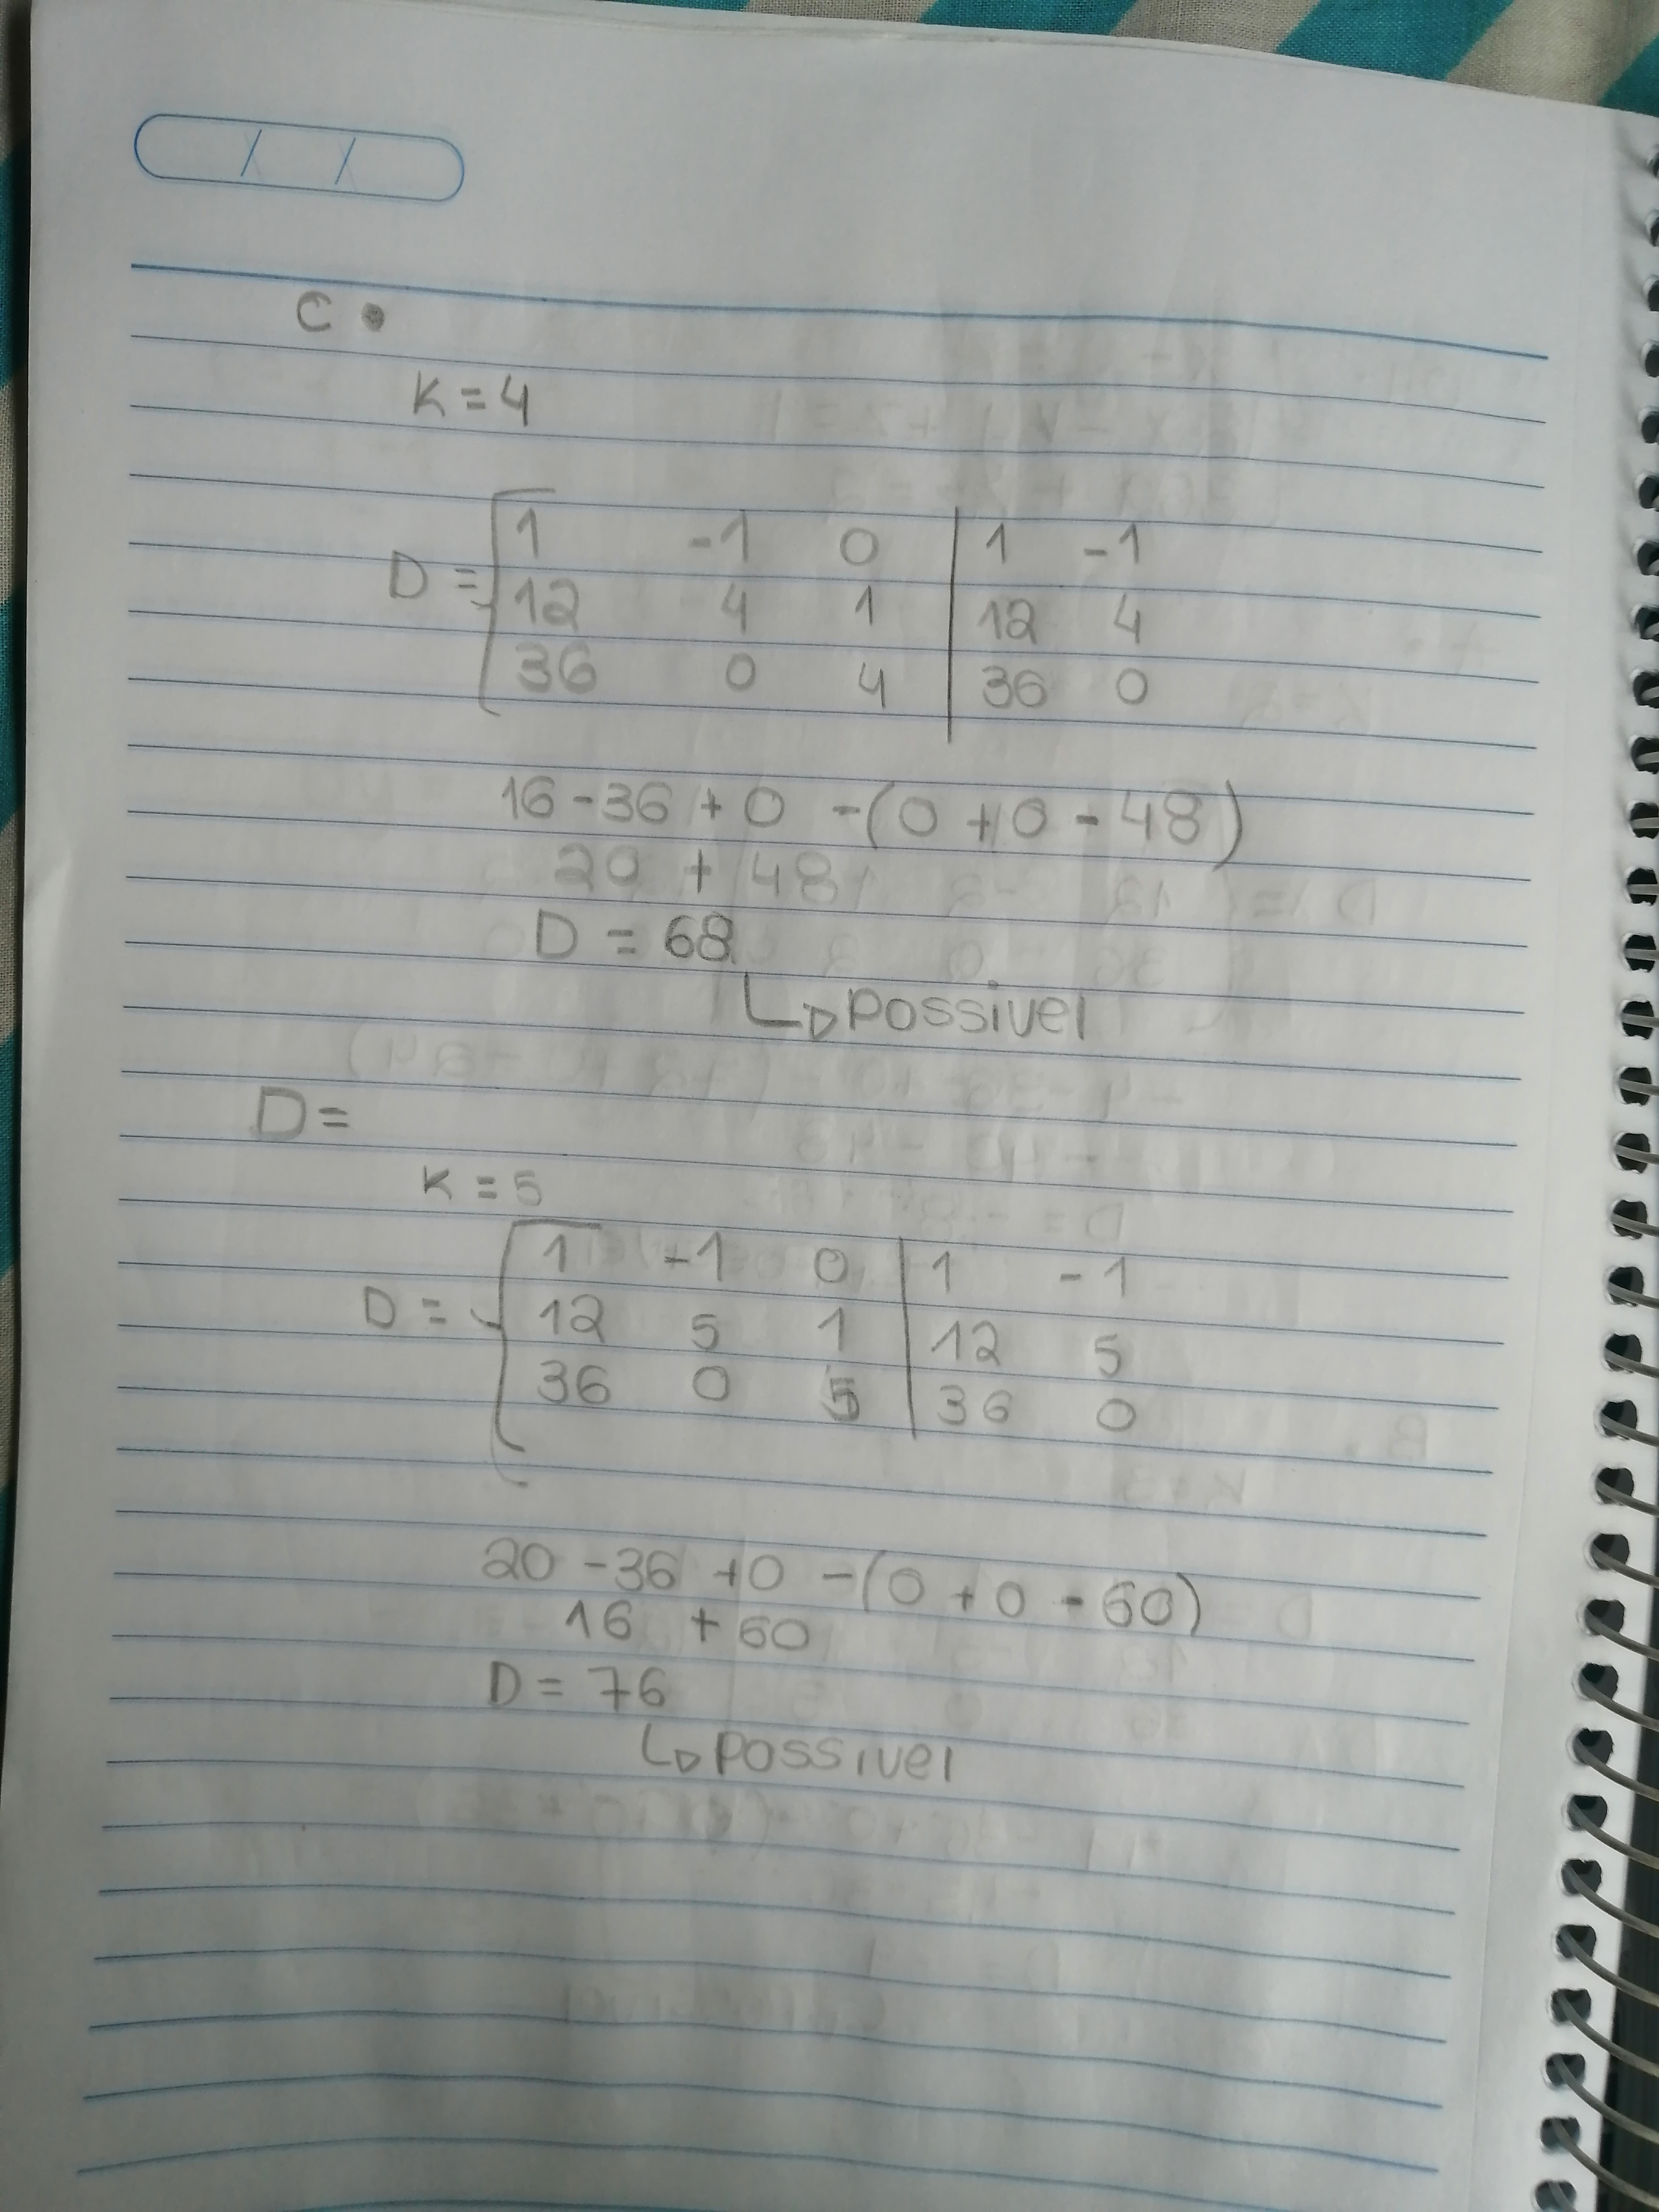 C •
K = 4
D = 1 -1 0 | 1 -1
12 4 1 | 12 4
36 0 4 | 36 0
16 - 36 + 0 - (0 + 0 - 48)
20 + 48
D = 68
↳ possivel
D =
K = 5
D = 1 -1 0 | 1 -1
12 5 1 | 12 5
36 0 5 | 36 0
20 - 36 + 0 - (0 + 0 - 60)
16 + 60
D = 76
↳ possivel